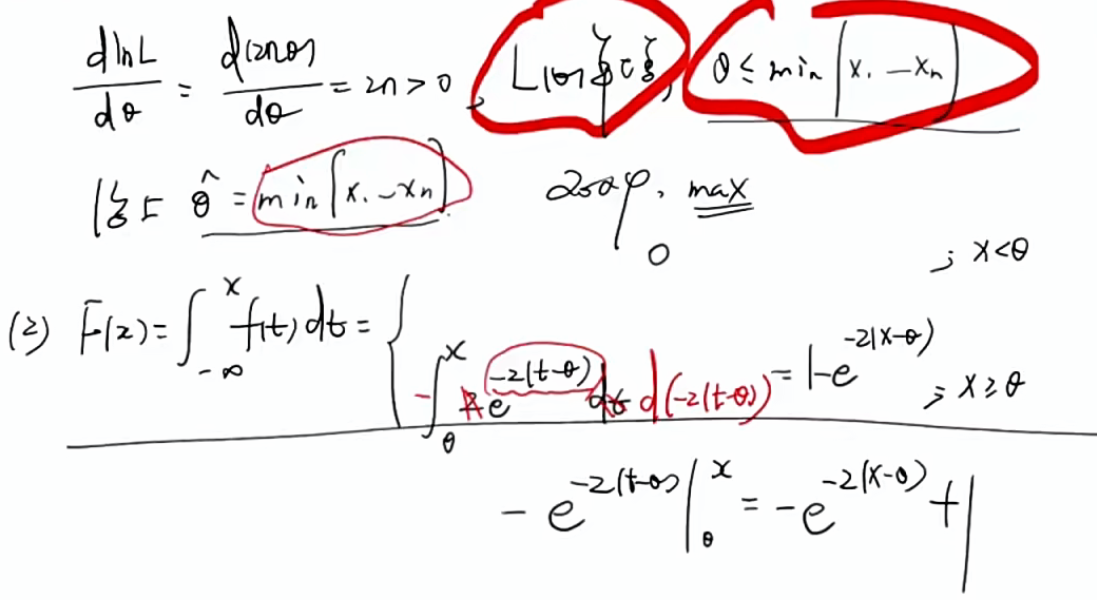 dlnL/dθ = d(2nθ)/dθ = 2n > 0, L(θ) θ ≤ min{x₁ … xₙ}
θ̂ = min{x₁ … xₙ} max
0 ; x<θ
(2) F(x) = ∫_{-∞}^{x} f(t) dt = {
-∫_θ^x 2e^{-2(t-θ)} dt d(-2(t-θ)) = 1-e^{-2(x-θ)} ; x≥θ
-e^{-2(t-θ)} |_θ^x = -e^{-2(x-θ)} + 1